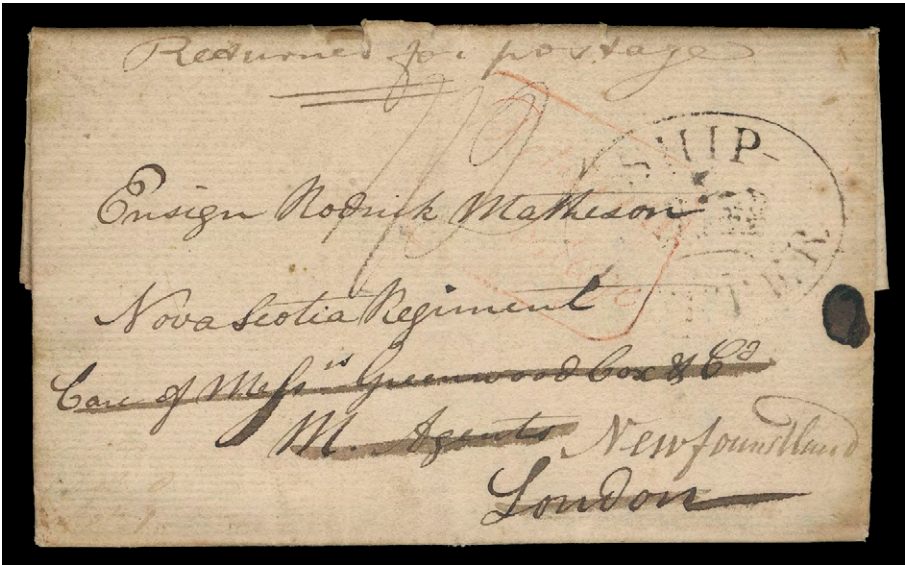 Returned for postage
SHIP-
Ensign Rodrick Matheson
Nova Scotia Regiment
Care of Messrs Greenwood Cox & Co
M. Agents Newfoundland
London